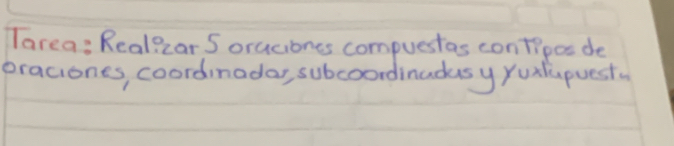 Tarea: Realizar 5 oraciones compuestas con Tipos de
oraciones, coordinadas, subcoordinadas y Yuxtapuesta